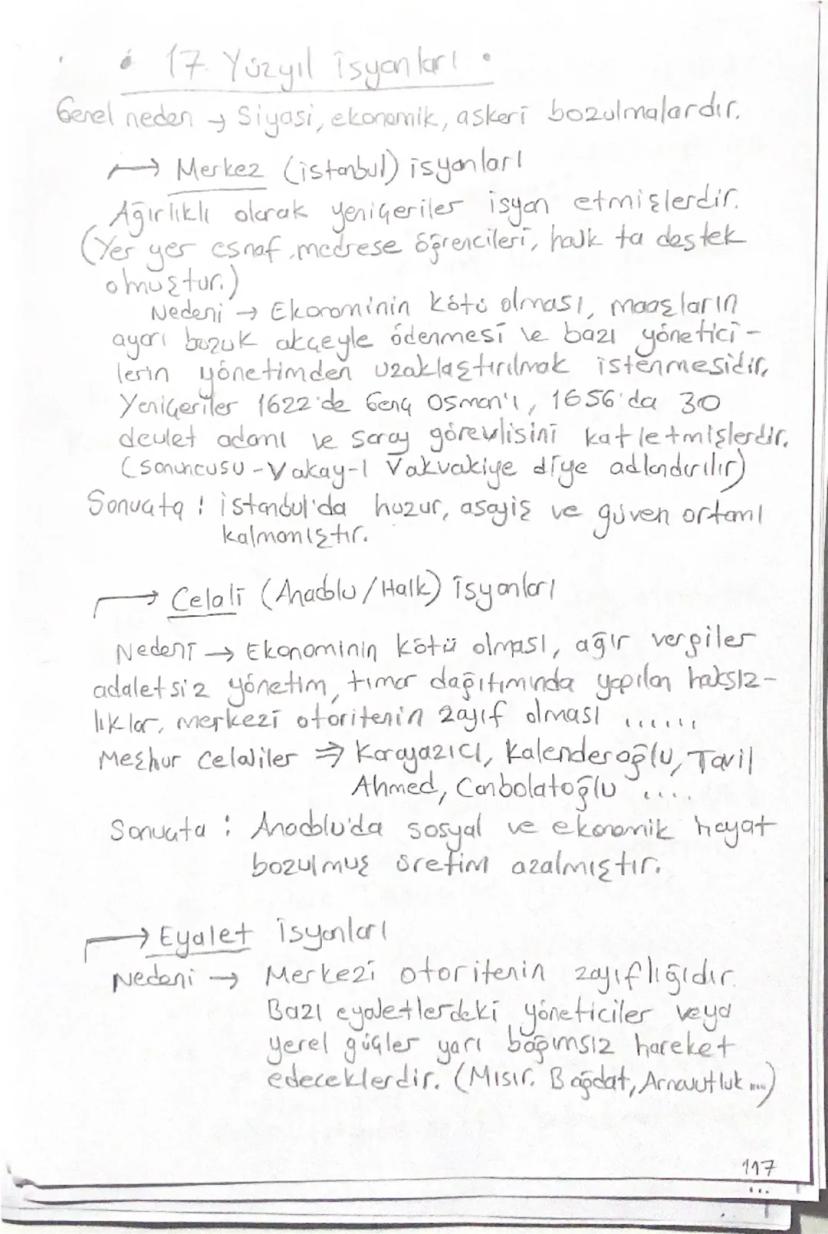 • 17. Yüzyıl İsyanları •
Genel neden → Siyasi, ekonomik, askeri bozulmalardır.
→ Merkez (İstanbul) isyanları
Ağırlıklı olarak yeniçeriler isyan etmişlerdir.
(Yer yer esnaf, medrese öğrencileri, halk ta destek
olmuştur.)
Nedeni → Ekonominin kötü olması, maaşların
ayarı bozuk akçeyle ödenmesi ve bazı yönetici-
lerin yönetimden uzaklaştırılmak istenmesidir.
Yeniçeriler 1622'de Genç Osman'ı, 1656'da 30
devlet adamı ve saray görevlisini katletmişlerdir.
(Sonuncusu - Vakay-ı Vakvakiye diye adlandırılır)
Sonuçta : İstanbul'da huzur, asayiş ve güven ortamı
kalmamıştır.
→ Celali (Anadolu/Halk) İsyanları
Nedeni → Ekonominin kötü olması, ağır vergiler
adaletsiz yönetim, tımar dağıtımında yapılan haksız-
lıklar, merkezi otoritenin zayıf olması ......
Meşhur Celaliler ⇒ Karayazıcı, Kalenderoğlu, Tavil
Ahmed, Canbolatoğlu ....
Sonuçta : Anadolu'da sosyal ve ekonomik hayat
bozulmuş üretim azalmıştır.
→ Eyalet İsyanları
Nedeni → Merkezi otoritenin zayıflığıdır.
Bazı eyaletlerdeki yöneticiler veya
yerel güçler yarı bağımsız hareket
edeceklerdir. (Mısır. Bağdat, Arnavutluk ...)
117
...